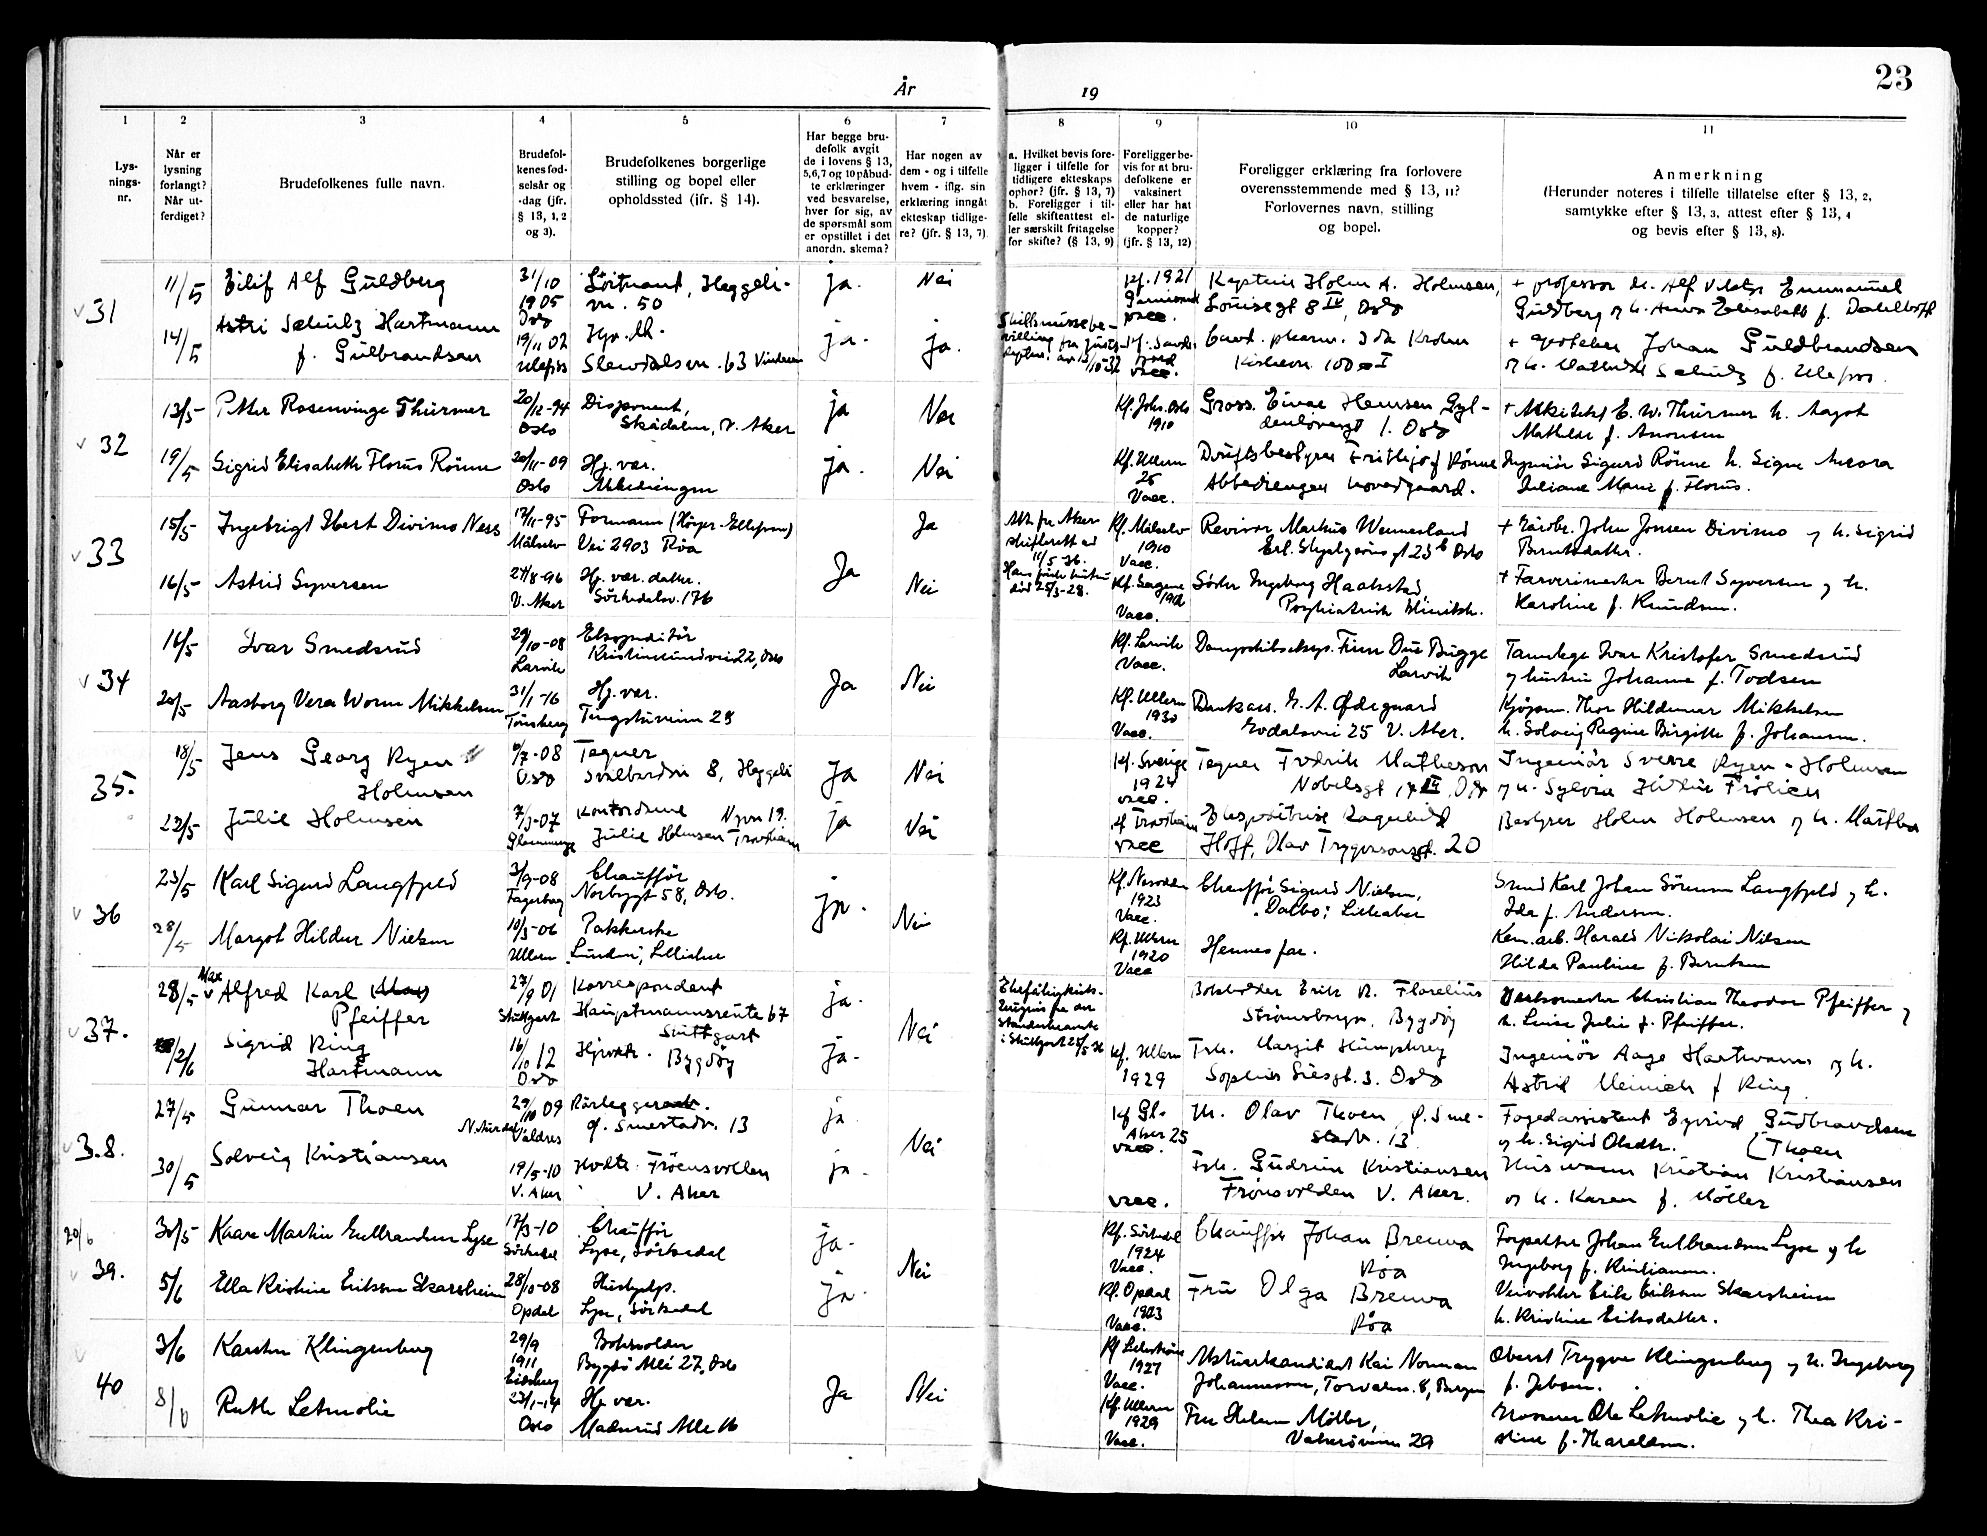 År
19
23
1
2
3
4
5
6
7
8
9
10
11
Lys-
nings-
nr.
Når er
lysning
forlangt?
Når ut-
ferdiget?
Brudefolkenes fulle navn.
Brudefol-
kenes fød-
selsår og
-dag (jfr.
§ 13, 1, 2
og 3).
Brudefolkenes borgerlige
stilling og bopel eller
opholdssted (ifr. § 14).
Har begge bru-
defolk avgit
de i lovens § 13,
5,6,7 og 10 påbud-
te erklæringer
ved besvarelse,
hver for sig, av
de spørsmål som
er opstillet i det
anordn. skema?
Har nogen av
dem - og i tilfelle
hvem - iflg. sin
erklæring inngåt
ekteskap tidlige-
re? (jfr. § 13, 7).
a. Hvilket bevis fore-
ligger i tilfelle for
tidligere ekteskaps
ophør? (jfr. § 13, 7)
b. Foreligger i til-
felle skifteattest el-
ler særskilt fritagelse
for skifte? (§ 13, 9)
Foreligger be-
vis for at bru-
defolkene er
vaksinert
eller har hat
de naturlige
kopper?
(jfr. § 13, 12)
Foreligger erklæring fra forlovere
overensstemmende med § 13, 11?
Forlovernes navn, stilling
og bopel.
Anmerkning
(Herunder noteres i tilfelle tillatelse efter § 13, 2,
samtykke efter § 13, 3, attest efter § 13, 4
og bevis efter § 13, 8).
31
11/5
Eilif Alf Guldberg
31/10
1905
Oslo
Løitnant, Heggeli-
vn. 50
ja.
Nei
Kf. 1921
vacc.
Kaptein Holm A. Holmsen,
Louisegt 8 IV, Oslo
+ professor dr. Alf Victor Emmanuel
Guldberg og h. Anna Elisabeth f. Dahll
14/5
Astri Schulz Hartmann
f. Gulbrandsen
19/11 02
Ulefoss
Slemdalsvn. 63 Vinderen
ja.
ja.
vacc.
Cand. pharm. Ida Krohn
Kirkevn. 100 I
+ apoteker Johan Guldbrandsen
og h. Mathilde Schulz f. Ulefos.
32
13/5
Petter Rosenvinge Thürmer
20/12-94
Oslo
Disponent,
Skådalen, V. Aker
ja
Nei
Kf. Joh. Oslo
1910
Gross. Einar Hansen Gyl-
denløvesgt 1. Oslo
+ Arkitekt E. W. Thürmer h. Aagot
Mathilde f. Amonsen
19/5
Sigrid Elisabeth Florus Rönne
20/11-09
Oslo
Hj. vær.
Abbediengen
ja.
Nei
Kf. Ullern
25
Vacc.
Driftsbestyrer Frithjof Rönne
Abbediengen hovedgaard.
Ingeniör Sigurd Rönne h. Signe
Juliane Marie f. Florus.
33
15/5
Ingebrigt Hart Divisno Ness
17/11-95
Målselv
Formann
Vei 2903 Röa
Ja
Ja
Att. fra Aker
skifterett ad
11/5-36.
död 25/3-28.
Kf. Målselv
1910
Vacc.
Revisor Markus Wennesland
Erl. Skjalgssöns gt 23 b Oslo
+ Gårdbr. John Jonsen Divisno og h. Sigrid
Berntsdatter.
16/5
Astrid Syversen
27/8-96
V. Aker
Hj. vær. datter.
Sörkedalsv. 176
Nei
Kf. Sagene
Vacc.
Söster Ingeborg Haakstad
Psykiatrisk klinikk.
+ Farverimester Bernt Syversen og h.
Karoline f. Knudsen.
34
16/5
Ivar Smedsrud
29/10-08
Larvik
Ekspeditör
Kristinelundvei 22, Oslo
Ja
Nei
Kf. Larvik
Vacc.
Dampskibseksp. Finn Due Bugge
Larvik
Tannlege Ivar Kristofer Smedsrud
og hustru Johanne f. Todsen
20/5
Aasborg Vera Worm Mikkelsen
31/1-16
Tönsberg
Hj. vær.
Tingstuveien 23
Kf. Ullern
1930
Vacc.
Bankass. E. A. Ødegaard
Godalsvei 25 V. Aker.
Kjøpm. Thor Hildemar Mikkelsen
h. Solveig Regine Birgitte f. Johansen.
35.
18/5
Jens Georg Ryen
Holmsen
6/7-08
Oslo
Tegner
Svalbardvn 8, Heggeli
Ja
Nei
Kf. Sverige
1924
vacc.
Tegner Fredrik Matheson
Nobelsgt 17 IV, Oslo
Ingeniør Sverre Ryen-Holmsen
og h. Sylvia f. Frölich
23/5
Julie Holmsen
7/3-07
Kontordame
Julie Holmsen Trondheim
ja
Nei
Kf Trondheim
vacc
Ekspeditrise Ragnhild
Hoff, Olav Trygvesonsgt. 20
Bestyrer Holm Holmsen og h. Martha
36
23/5
Karl Sigurd Langfjeld
3/9-08
Fagerborg
Chaufför
Norbygt 58, Oslo.
ja.
Nei
Kf. Nesodden
1923
Vacc.
Chaufför Sigurd Nielsen,
Dalbo, Lilleaker
Smed Karl Johan Sörensen Langfjeld og h.
Ida f. Andersen.
28/5
Margot Hildur Nielsen
10/3-06
Ullern
Pakkerske
Lunden, Lilleaker
Kf. Ullern
1920
Vacc
Hennes far.
Kom. arb. Harald Nikolai Nilsen
Hilda Pauline f. Berntsen
37.
28/5
Max
Alfred Karl (Max)
Pfeiffer
27/9 01
Stuttgart
Korrespondent
Hauptmannsreute 67
Stuttgart
ja.
Nei
Ehefähigkeits-
zeugnis fra der
Standesbeamte
i Stuttgart 25/5 36
Bokholder Erik R. Florelius
Strömsborgv, Bygdöy
Verksmester Christian Theodor Pfeiffer og
h. Luise Julie f. Pfeiffer.
2/6
Sigrid Ring
Hartmann
16/10 12
Oslo
Hjvdtr. Bygdöy
ja.
Kf. Ullern
1929
Frk. Margit Humphrey
Sophus Liesgt. 3. Oslo
Ingeniör Aage Hartmann og h.
Astrid Meinich f Ring.
38.
27/5
Gunnar Thoen
29/10 09
N. Aurdal
Valdres
Rørlegger
G. Smestadv. 13
ja.
Nei
Kf Gl.
Aker 25
vacc.
Hr. Olav Thoen, G. Sme-
stadv. 13.
Fogedassistent Eyvind Gudbrandsen
og h. Sigrid Olsdtr. (Thoen
30/5
Solveig Kristiansen
19/5-10
V. Aker
Hvdtr. Fröensvollen
V. Aker
ja.
vacc.
Frk. Gudrun Kristiansen
Frönsvolden V. Aker.
Husmann Kristian Kristiansen
og h. Karen f. Möller
20/6
39.
30/5
Kaare Martin Gulbrandsen Lyse
17/3-10
Sörkedal
Chaufför
Lyse, Sörkedal
ja.
Nei
Kf. Sörkedal
1924
Vacc.
Chauffør Johan Brenna
Röa
Forpakter Johan Gulbrandsen Lyse og h
Ingeborg f. Kristiansen.
5/6
Ella Kristine Eriksson Skarsheim
28/10-08
Opdal
Hushjelp.
Lyse, Sörkedal
ja.
Kf. Opdal
1923
Vacc.
Fru Olga Brenna
Röa
Veivokter Erik Eriksen Skarsheim
h. Kristine Eriksdatter.
40
3/6
Karsten Klingenberg
29/9
1911
Eidsberg
Bokholder
Bygdö Allé 27, Oslo
Ja
Nei
1927
Vacc.
Aktuarkandidat Kai Norman
Johannessen, Torvalm. 8, Bergen
Oberst Trygve Klingenberg og h. Ingeborg
f. Jebsen.
8/6
Ruth Letmolie
23/1-14
Oslo
Hj. vær.
Madserud Alle 16
Kf. Ullern
1929
Vacc.
Fru Helene Möller,
Vækeröveien 29
Grosserer Ole Letmolie og h. Thea Kri-
stine f. Tharaldsen.